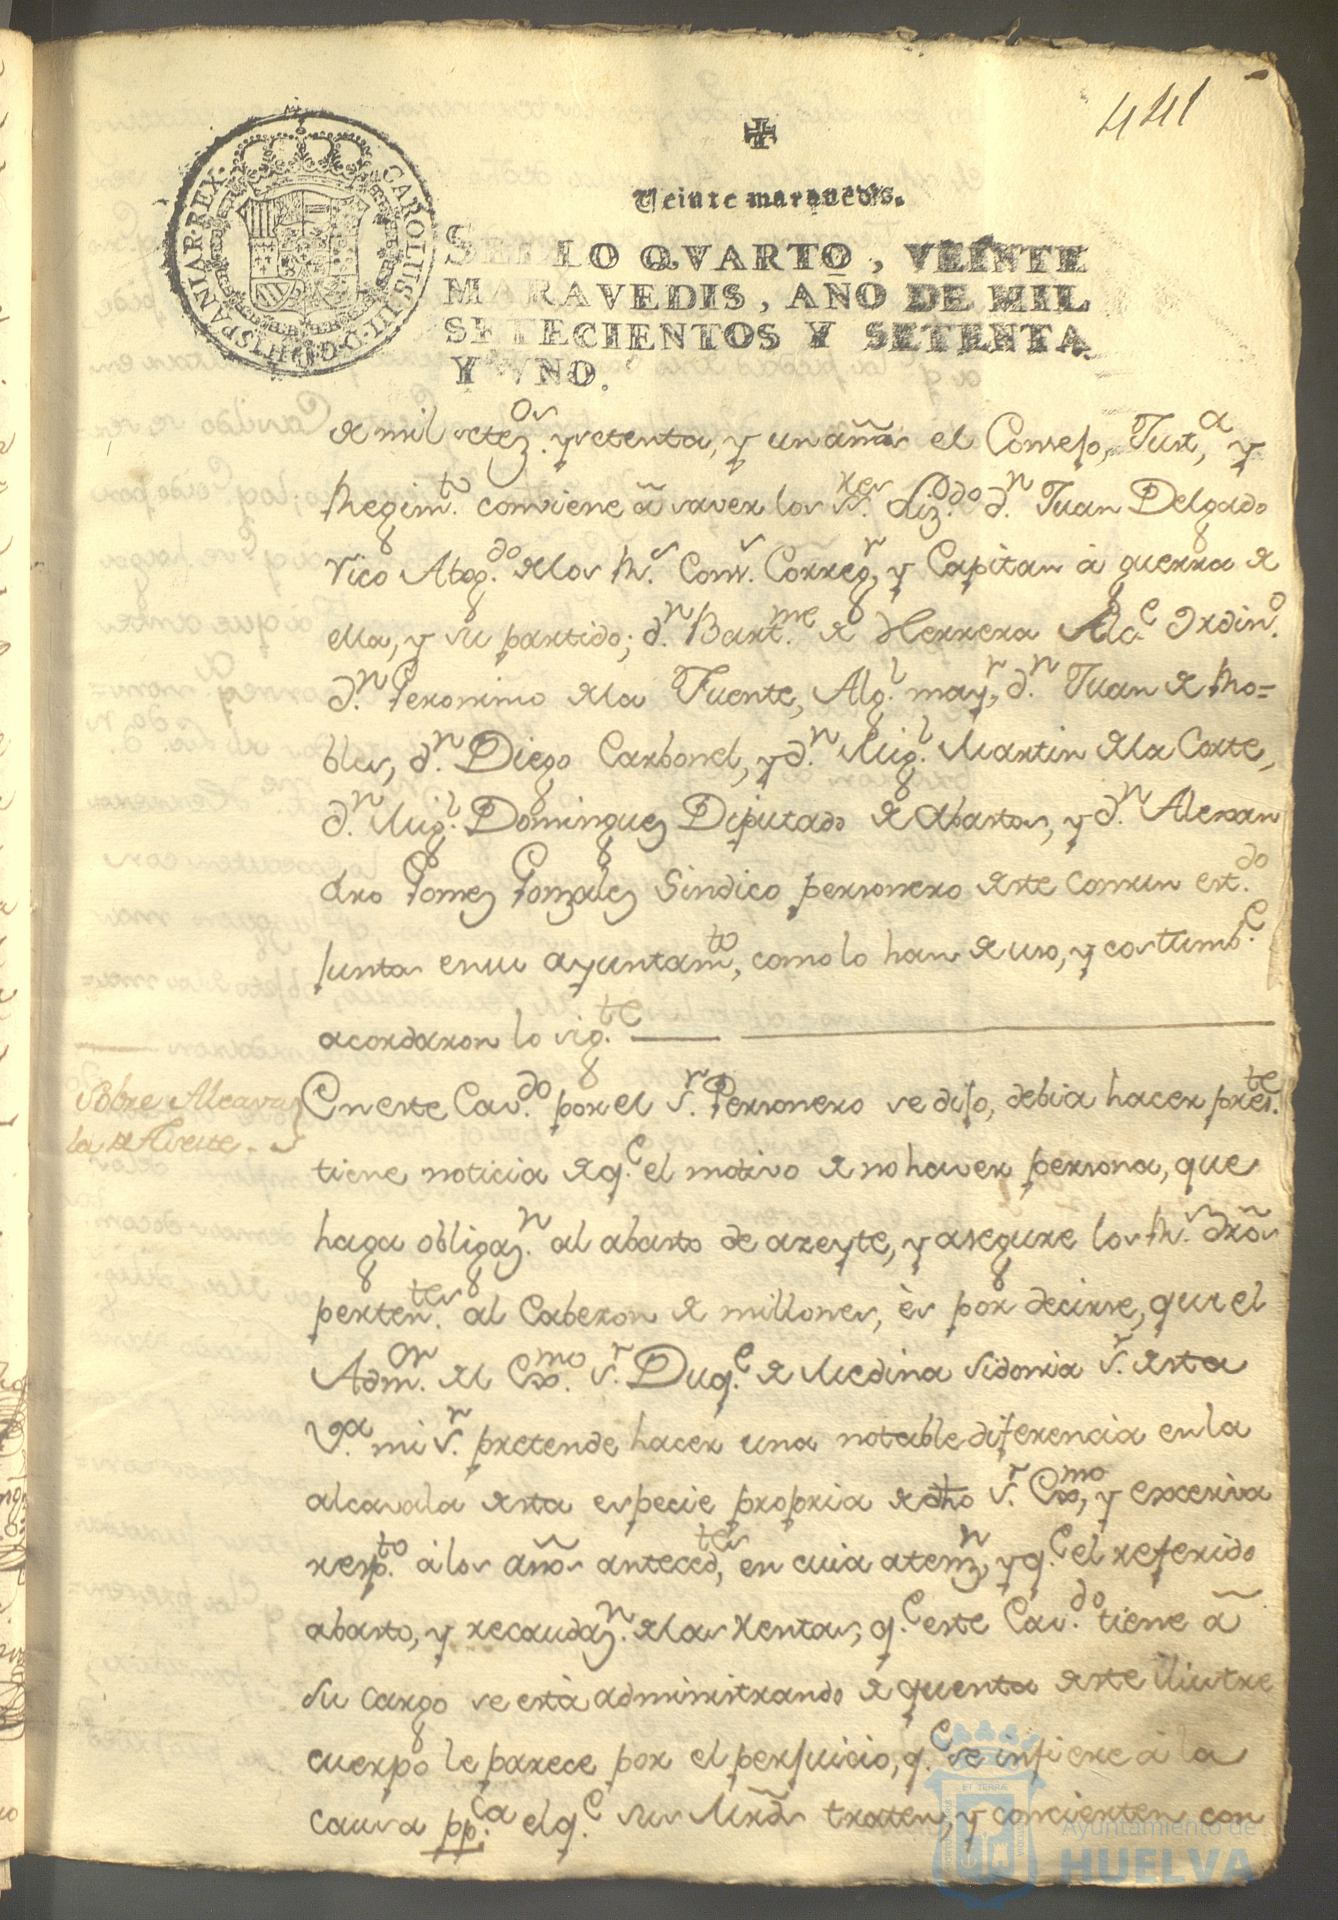 441
Veinte maravedis.
SELLO QVARTO, VEINTE
MARAVEDIS, AÑO DE MIL
SETECIENTOS Y SETENTA
Y VNO.
CAROLUS III D G HISPANIAR REX
de mil setez.os y setenta, y un años el Consejo, Just.a, y
Regim.to conviene à saver los S.res Liz.do d.n Juan Delgado
Vico Abog.do de los R.s Cons.s Correg.r, y Capitan à guerra de
ella, y su partido; d.n Bart.me de Herrera Alc.e Ordin.o
d.n Geronimo de la Fuente, Alg.l may.r, d.n Juan de Ro=
bles, d.n Diego Carbonel, y d.n Mig.l Martin de la Corte,
d.n Mig.l Dominguez Diputado de Abastos, y d.n Alexan
dro Gomez Gonzalez Sindico personero deste comun est.do
juntos en su ayuntam.to, como lo han de uso, y costumb.e
acordaron lo sig.te
Sobre Alcava
la de Aceite.
En este Cav.do por el S.r Personero se dijo, debia hacer pres.te
tiene noticia de q.e el motivo de no haver persona, que
haga obligaz.n al abasto de azeyte, y asegure los R.s dr̃os
perten.tes al Cabezon de millones, ès por decirse, que el
Adm.or del Exmo. S.r Duq.e de Medina Sidonia S.r desta
V.a mi S.r pretende hacer una notable diferencia en la
alcavala desta especie propria de dho S.r Exmo, y excesiva
resp.to à los años anteced.tes, en cuia atenz.n, y q.e el referido
abasto, y recaudaz.n de las Rentas, q.e este Cav.do tiene à
su cargo se està administrando de quenta deste Ilustre
cuerpo le parece por el perjuicio, q.e se infiere à la
causa pp.ca el q.e sus Mrds traten, y concierten con
Ayuntamiento de
HUELVA